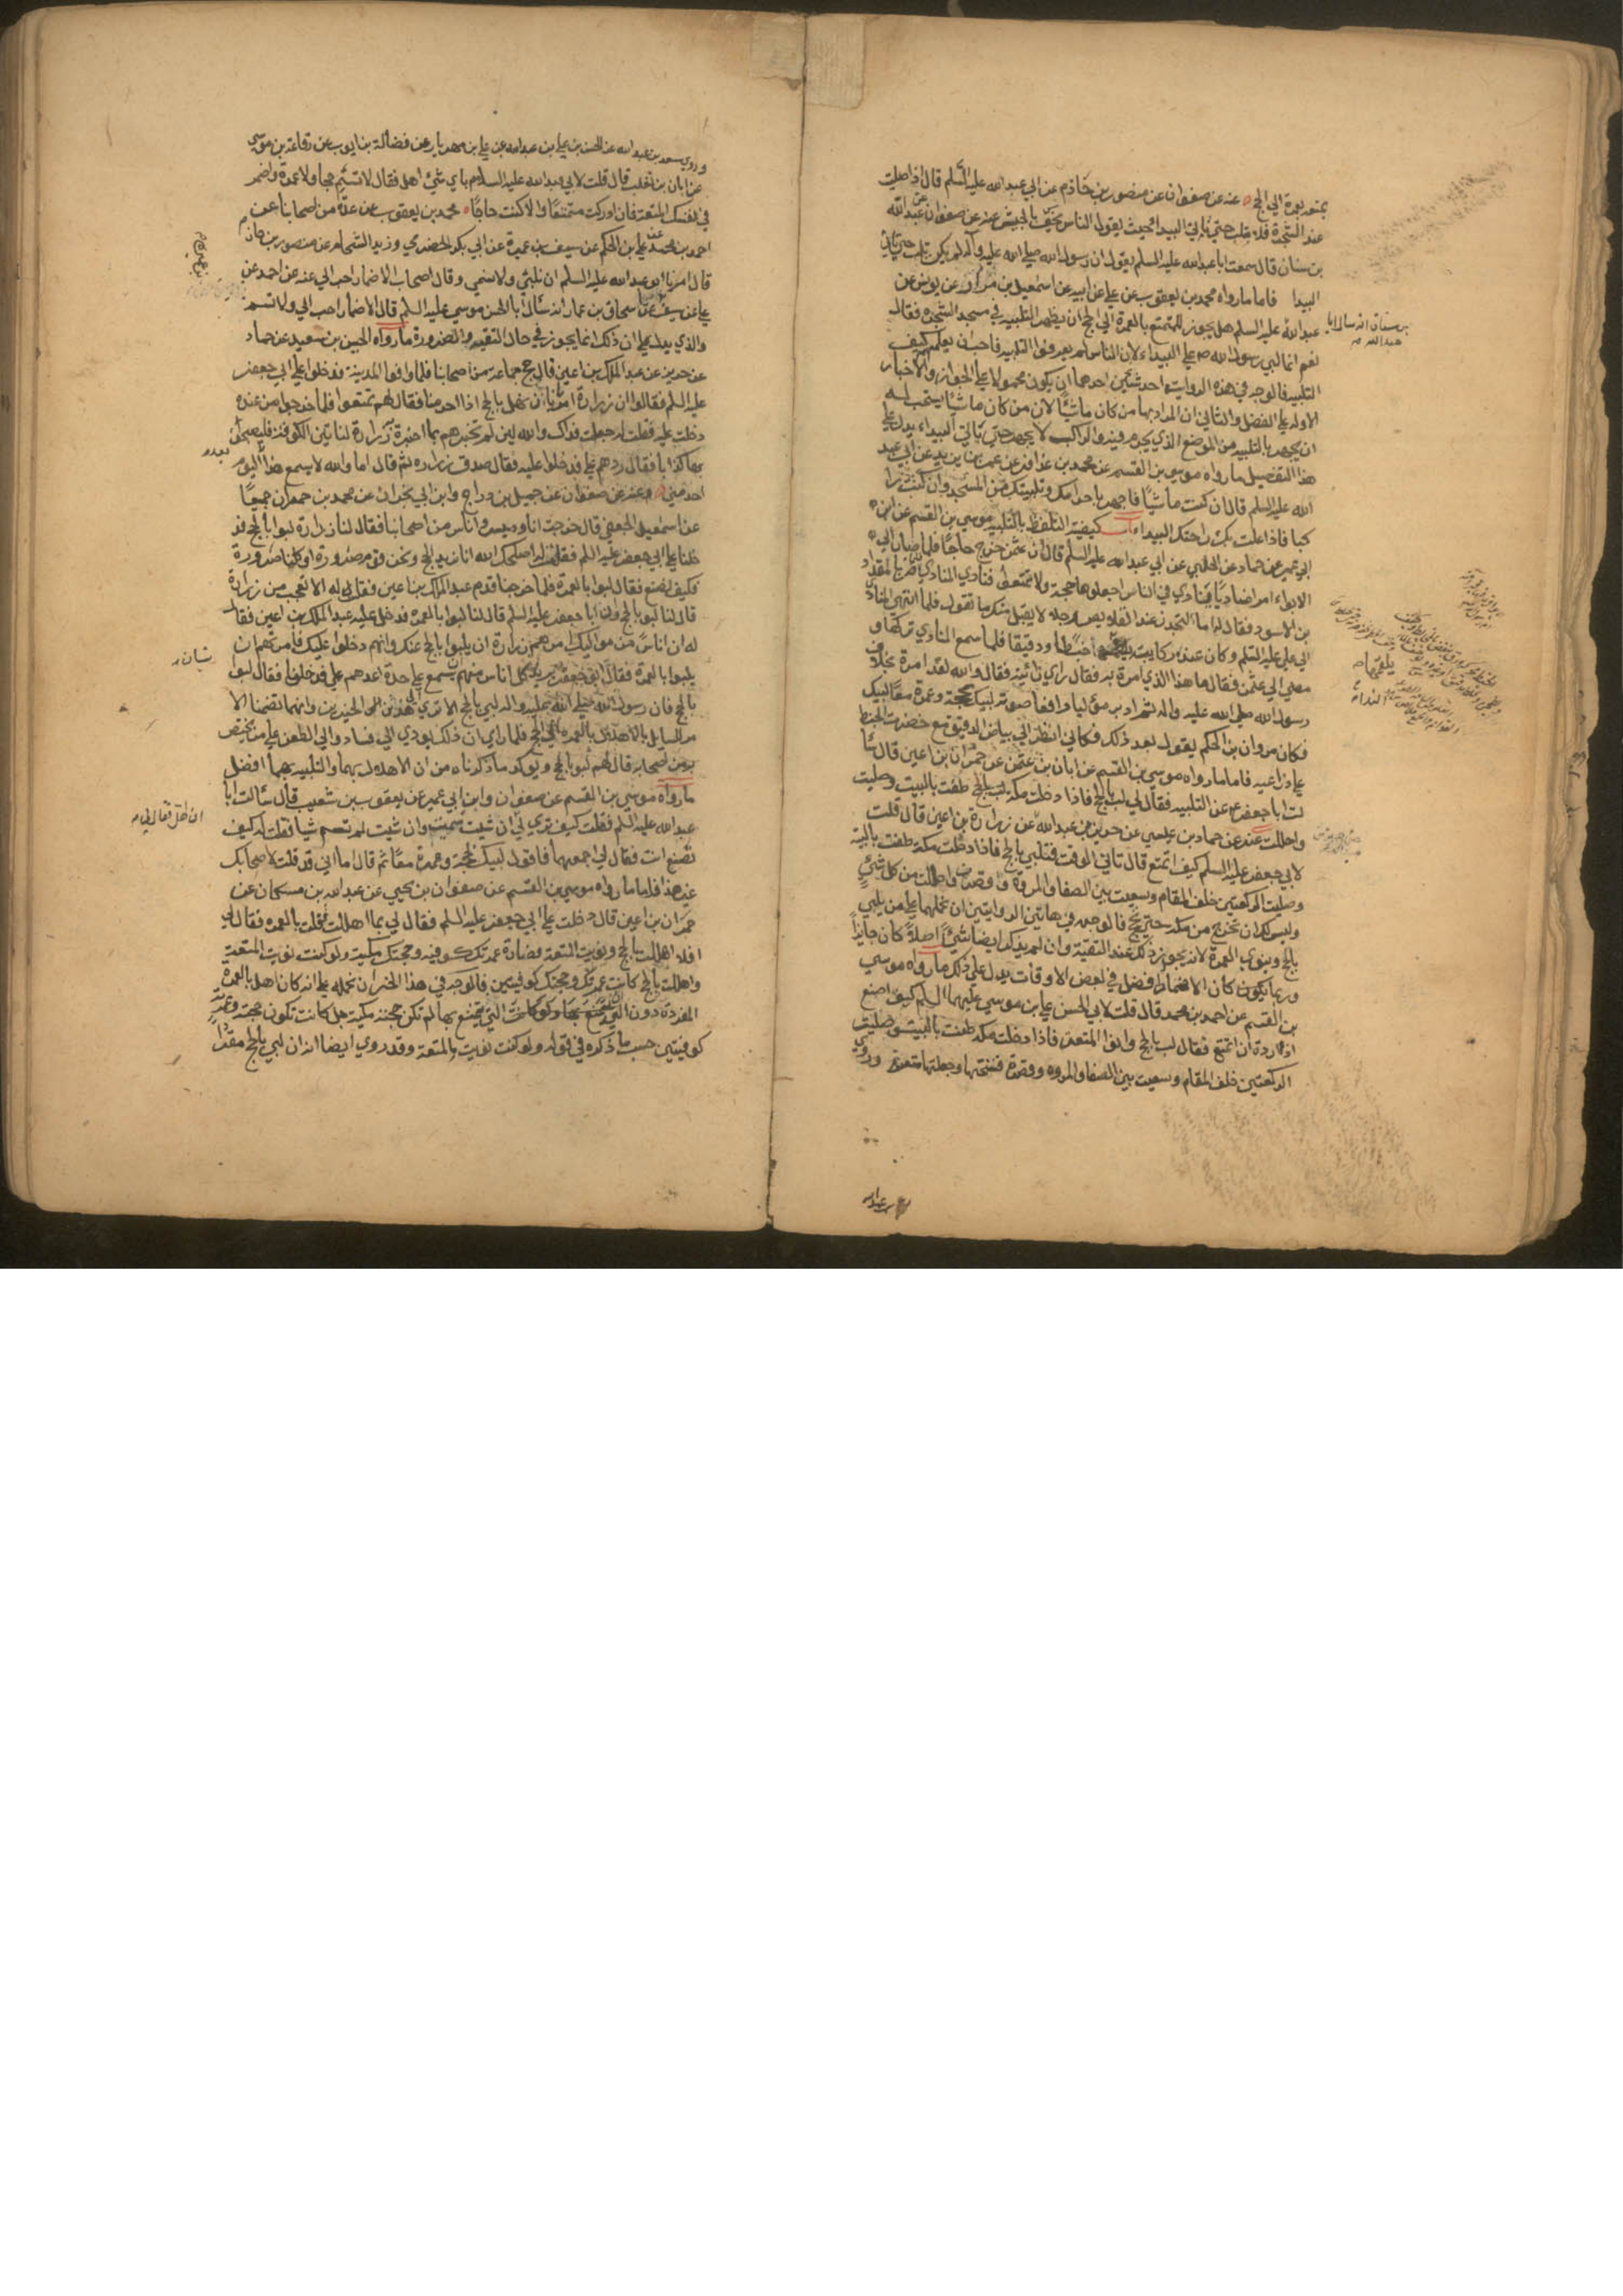 بمتعه بعمرة الي الحج عنه عن صفوان عن منصور بن حازم عن ابي عبد الله عليه السلم قال اذا صليت
عند الشجرة فلا تلب حتي تاتي البيداء حيث يقول الناس يخسف بالجيش عنه عن صفوان عن عبد الله
بن سنان قال سمعت ابا عبد الله عليه السلم يقول ان رسول الله صلي الله عليه وآله لم يكن يلب حتي ياتي
البيدا فاما ما رواه محمد بن يعقوب عن علي عن ابيه عن اسمعيل بن مرار عن يونس عن
عبد الله عليه السلم هل يجوز للمتمتع بالعمرة الي الحج ان يظهر التلبيه في مسجد الشجره فقال
نعم انما لبي رسول الله ص علي البيداء لان الناس لم يعرفوا التلبيه فاحب ان يعلمهم كيف
التلبيه فالوجه في هذه الرواية احد شيئين احدهما ان يكون محمولا علي الجواز والاخبار
الاوله علي الفضل والثاني ان المراد بها من كان ماشيا لان من كان ماشيا يستحب له
ان يجهر بالتلبيه من الموضع الذي يحرم فيه والراكب لا يجهر حتي ياتي البيداء يدل علي
هذا التفصيل ما رواه موسي بن القسم عن محمد بن عذافر عن عمر بن يزيد عن ابي عبد
الله عليه السلم قال ان كنت ماشيا فاجهر باهلالك وتلبيتك من المسجد وان كنت را
كبا فاذا علت بك راحلتك البيداء باب كيفية التلفظ بالتلبيه موسي بن القسم عن ابن
ابي عمير عن حماد عن الحلبي عن ابي عبد الله عليه السلم قال ان عثمن خرج حاجا فلما صار الي
الابواء امر مناديا فنادي في الناس اجعلوها حجة ولا تمتعوا فنادي المنادي فمر بالمقداد
بن الاسود فقال له اما لتجدن عند القلايص رجلا لا يقبل منك ما تقول فلما انتهي المنادي
الي علي عليه السلم وكان عند ركايبه يلقمها خبطا ودقيقا فلما سمع المنادي تركها و
مضي الي عثمن فقال ما هذا الذي امرت به فقال راي رايته فقال والله لقد امرت بخلاف
رسول الله صلي الله عليه واله ثم ادبر موليا رافعا صوته لبيك بحجة وعمرة معا لبيك
فكان مروان بن الحكم يقول بعد ذلك فكاني انظر الي بياض الدقيق مع خضرة الخبط
علي ذراعيه فاما ما رواه موسي بن القسم عن ابان بن عثمن عن حمران بن اعين قال سا
لت ابا جعفر ع عن التلبيه فقال لي لب بالحج فاذا دخلت مكة طفت بالبيت وصليت
واحللت عنه عن حماد بن عيسي عن حريز بن عبد الله عن زرارة بن اعين قال قلت
لابي جعفر عليه السلم كيف اتمتع قال تاتي الوقت فتلبي بالحج فاذا دخلت مكة طفت بالبيت
وصليت الركعتين خلف المقام وسعيت بين الصفا والمروة وقصرت واحللت من كل شئ
وليس لك ان تخرج من مكة حتي تحج فالوجه في هاتين الروايتين ان نحملهما علي من يلبي
بالحج وينوي العمرة لانه يجوز ذلك عند التقية وان لم يذكر ايضا شئ اصلا كان جايزا
وربما يكون كان الاضمار افضل في بعض الاوقات يدل علي ذلك ما رواه موسي
بن القسم عن احمد بن محمد قال قلت لابي الحسن علي بن موسي عليهما السلم كيف اصنع
اذا اردت ان اتمتع فقال لب بالحج وانوا المتعة فاذا دخلت مكة طفت بالبيت وصليت
الركعتين خلف المقام وسعيت بين الصفا والمروه وقصرت ففسختها وجعلتها متعة وروي
بن سنان انه سال ابا
عبد الله
يلقمها
وروي سعد بن عبد الله عن الحسن بن علي بن عبد الله عن علي بن مهزيار عن فضالة بن ايوب عن رفاعة بن موسي
عن ابان بن تغلب قال قلت لابي عبد الله عليه السلام باي شئ اهل فقال لا تسم حجا ولا عمرة واضمر
في نفسك المتعة فان ادركت متمتعا والا كنت حاجا محمد بن يعقوب عن عدة من اصحابنا عن
احمد بن محمد عن علي بن الحكم عن سيف بن عميرة عن ابي بكر الحضرمي وزيد الشحام عن منصور بن حازم
قال امرنا ابو عبد الله عليه السلم ان نلبي ولا نسمي وقال اصحاب الاضمار احب الي عنه عن احمد عن
علي عن سيف عن اسحاق بن عمار انه سال ابا الحسن موسي عليه السلم قال الاضمار احب الي ولا تسم
والذي يدل علي ان ذلك انما يجوز في حال التقيه والضرورة ما رواه الحسين بن سعيد عن حماد
عن حريز عن عبد الملك بن اعين قال حج جماعة من اصحابنا فلما وافوا المدينة فدخلوا علي ابي جعفر
عليه السلم فقالوا ان زرارة امرنا ان نهل بالحج اذا احرمنا فقال لهم تمتعوا فلما خرجوا من عنده
دخلت عليه فقلت له جعلت فداك والله لئن لم تخبرهم بما اخبرت زرارة لناتين الكوفة فليصبحن
بها كذابا فقال ردهم علي فدخلوا عليه فقال صدق زراره ثم قال اما والله لا يسمع هذا اليوم
احد مني وعنه عن صفوان عن جميل بن دراج وابن ابي نجران عن محمد بن حمران جميعا
عن اسمعيل الجعفي قال خرجت انا وميسر واناس من اصحابنا فقال لنا زرارة لبوا بالحج فد
خلنا علي ابي جعفر عليه السلم فقلت له اصلحك الله انا نريد الحج ونحن قوم صرورة او كلنا صرورة
فكيف نصنع فقال لبوا بالعمرة فلما خرجنا قدم عبد الملك بن اعين فقلت له الا تعجب من زرارة
قال لنا لبوا بالحج وان ابا جعفر عليه السلم قال لنا لبوا بالعمره فدخل عليه عبد الملك بن اعين فقال
له ان اناسا من مواليك امرهم زرارة ان يلبوا بالحج عنك وانهم دخلوا عليك فامرتهم ان
يلبوا بالعمرة فقال ابو جعفر يريد كل انسان منهم ان يسمع علي حدة اعدهم علي فدخلوا فقال لبوا
بالحج فان رسول الله صلي الله عليه واله لبي بالحج الا تري الي هذين الخبرين وانهما تضمنا الا
مر للسايل بالاهلال بالعمرة الي الحج فلما راي ان ذلك يودي الي فساد والي الطعن علي من يختص
به من اصحابه قال لهم لبوا بالحج ويوكد ما ذكرناه من ان الاهلال بهما والتلبيه بهما افضل
ما رواه موسي بن القسم عن صفوان وابن ابي عمير عن يعقوب بن شعيب قال سالت ابا
عبد الله عليه السلم فقلت كيف تري لي ان شئت سميت وان شئت لم تسم شيا فقلت له كيف
تصنع انت فقال لي اجمعهما فاقول لبيك بحجة وعمرة معا ثم قال اما اني قد قلت لاصحابك
غير هذا فاما ما رواه موسي بن القسم عن صفوان بن يحيي عن عبد الله بن مسكان عن
حمران بن اعين قال دخلت علي ابي جعفر عليه السلم فقال لي بما اهللت فقلت بالعمره فقال لي
افلا اهللت بالحج ونويت المتعة فصارة عمرتك كوفيه وحجتك مكية ولو كنت نويت المتعة
واهللت بالحج كانت عمرتك وحجتك كوفيتين فالوجه في هذا الخبر ان نحمله علي انه كان اهل بالعمرة
المفردة دون التي يتمتع بها ولو كانت التي يتمتع بها لم تكن حجته مكية بل كانت تكون حجته وعمرته
كوفيتين حسب ما ذكره في قوله ولو كنت نويت المتعة وقد روي ايضا انه ان لبي بالحج مفردا